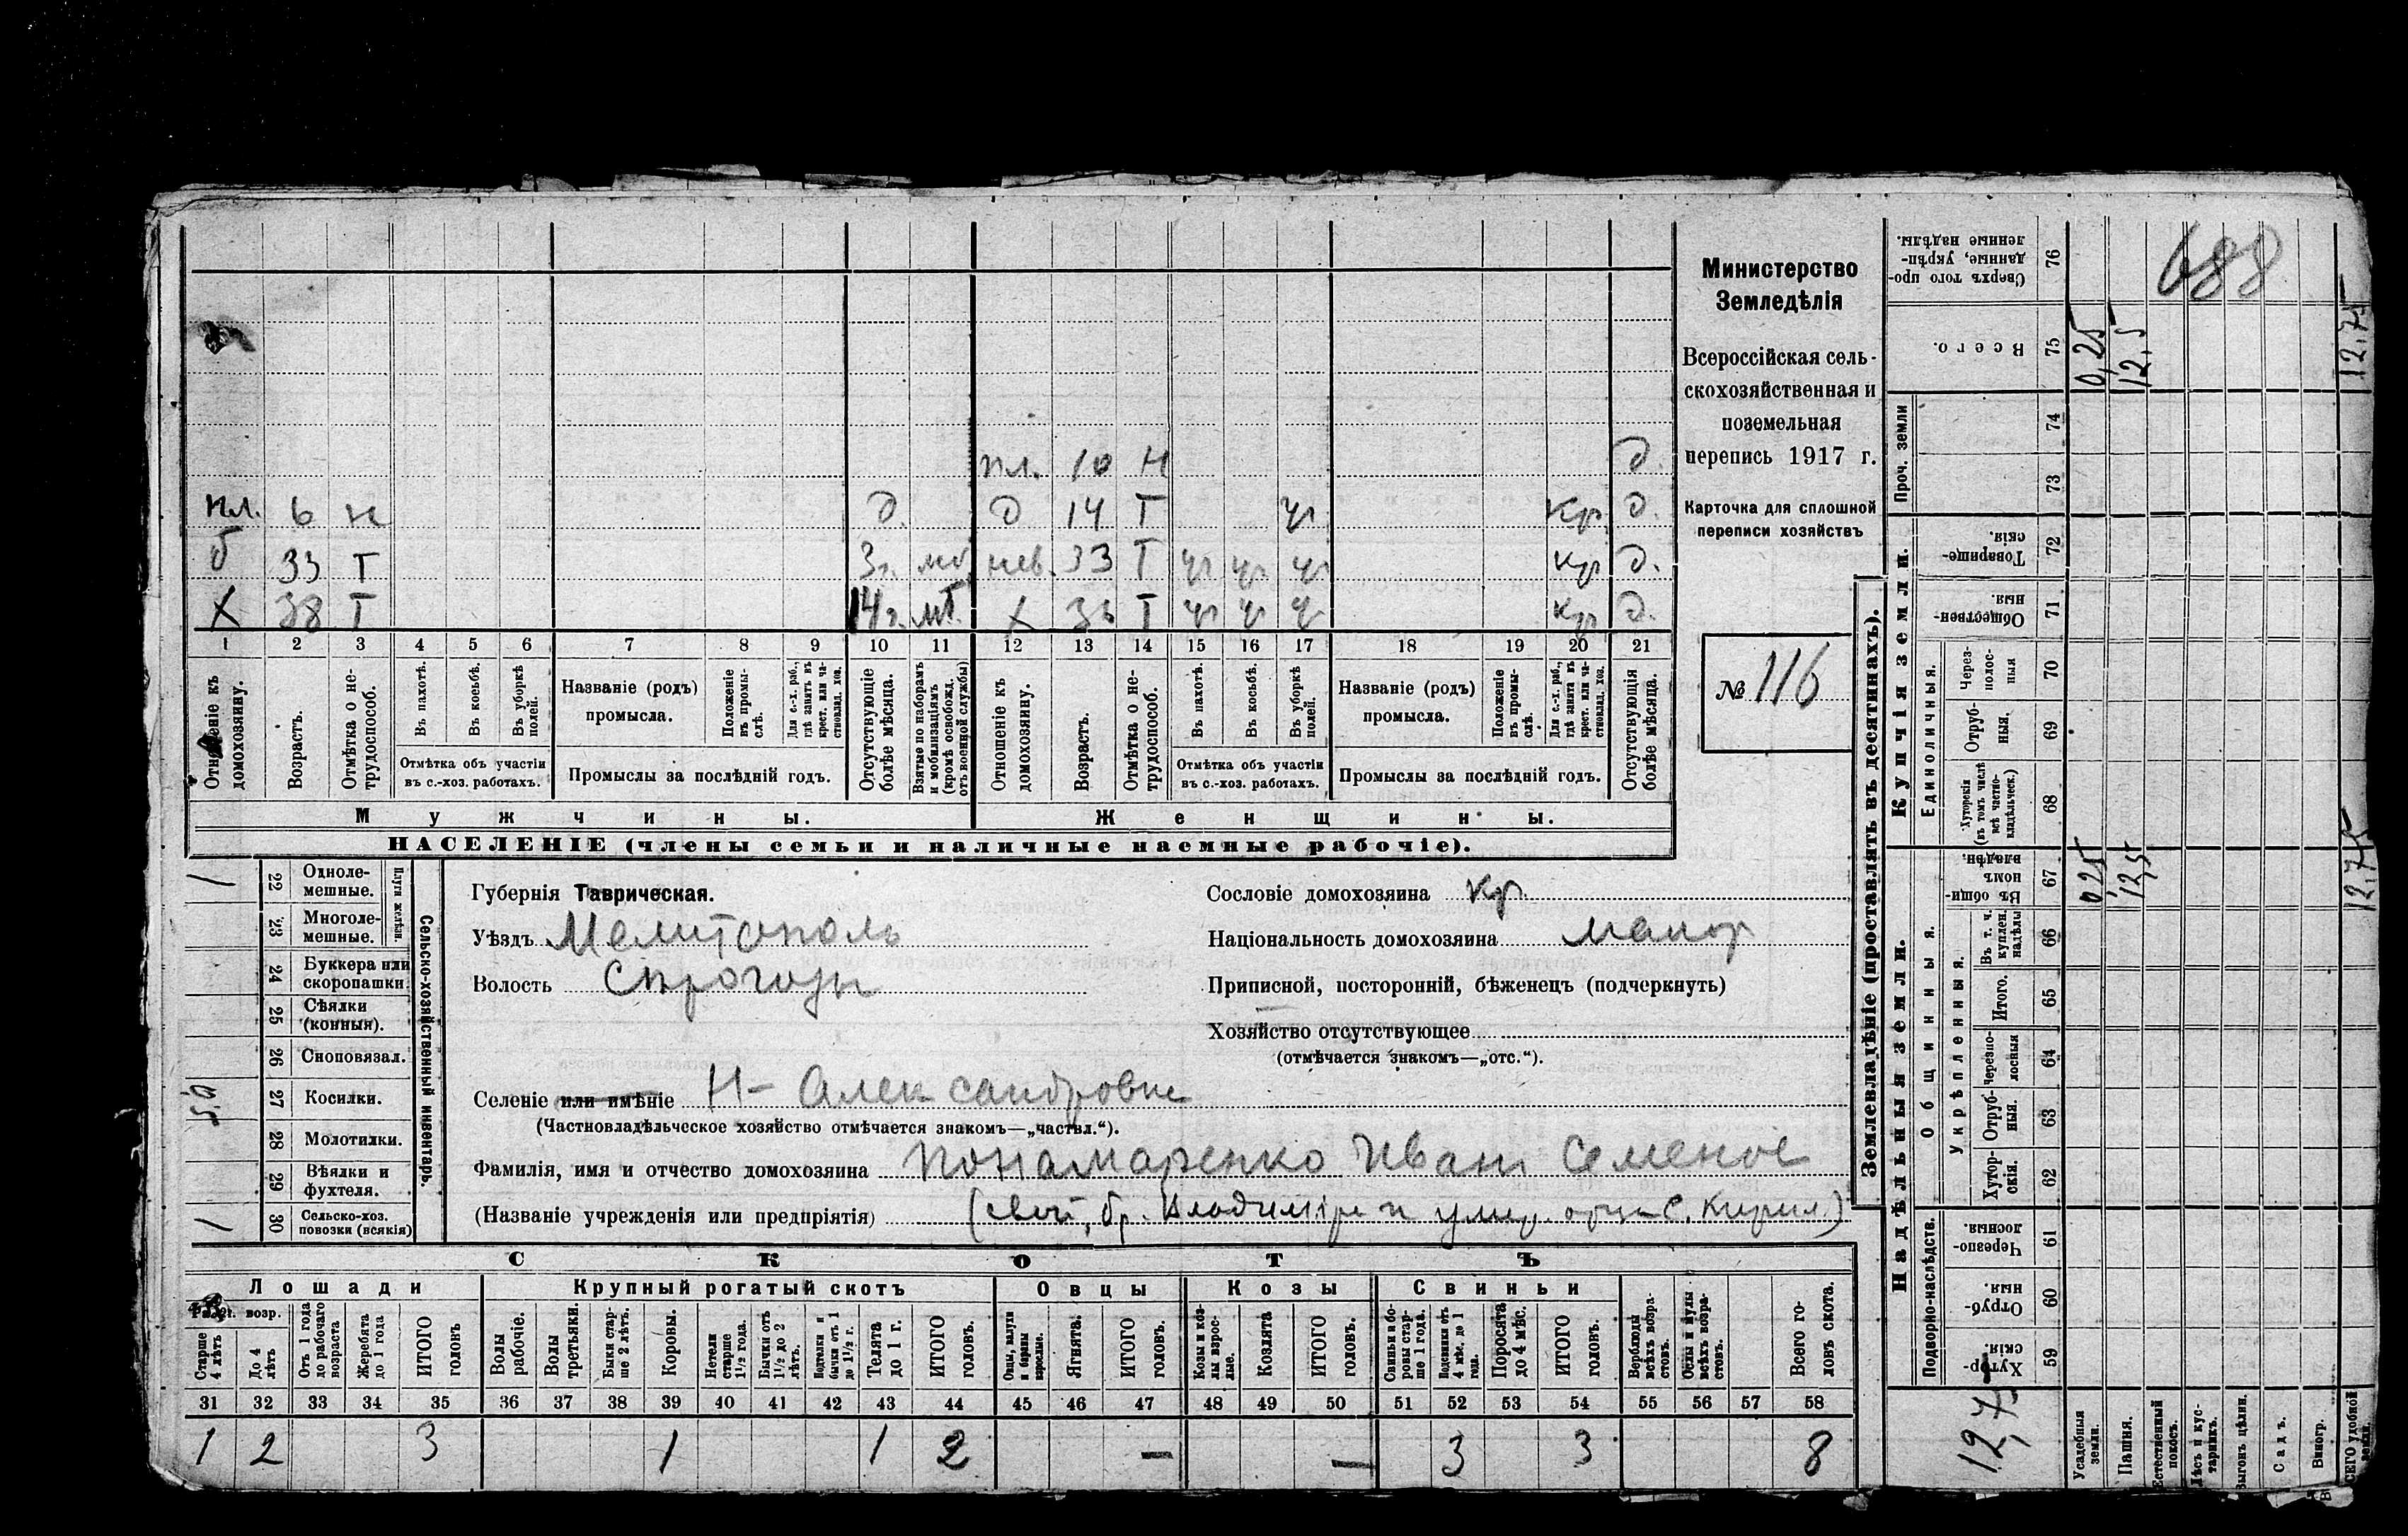 688
Министерство
Земледѣлія
Всероссійская сель-
скохозяйственная и
поземельная
перепись 1917 г.
Карточка для сплошной
переписи хозяйствъ
№ 116
пл. 10 н д.
пл. 6 н д. д 14 Т уг кр. д.
б 33 Т 3г. мб нев. 33 Т уг уг уг кр д.
Х 38 Т 14 г. мТ. Х 36 Т уг уг уг кр д.
1 2 3 4 5 6 7 8 9 10 11 12 13 14 15 16 17 18 19 20 21
Отношеніе къ домохозяину.
Возрастъ.
Отмѣтка о не-трудоспособ.
Въ пахотѣ.
Въ косьбѣ.
Въ уборкѣ полей.
Отмѣтка объ участіи въ с.-хоз. работахъ.
Названіе (родъ) промысла.
Положеніе въ промы-слѣ.
Для с.-х. раб., гдѣ занятъ въ крест. или ча-стновлад. хоз.
Промыслы за послѣдній годъ.
Отсутствующіе болѣе мѣсяца.
Взятые по наборамъ и мобилизаціямъ (кромѣ освобожд. отъ военной службы)
Отношеніе къ домохозяину.
Возрастъ.
Отмѣтка о не-трудоспособ.
Въ пахотѣ.
Въ косьбѣ.
Въ уборкѣ полей.
Отмѣтка объ участіи въ с.-хоз. работахъ.
Названіе (родъ) промысла.
Положеніе въ промы-слѣ.
Для с.-х. раб., гдѣ занята въ крест. или ча-стновлад. хоз.
Промыслы за послѣдній годъ.
Отсутствующія болѣе мѣсяца.
Мужчины. Женщины.
НАСЕЛЕНІЕ (члены семьи и наличные наемные рабочіе).
Сельско-хозяйственный инвентарь.
Плуги желѣзн.
1 22 Одноле-мешные.
23 Многоле-мешные.
24 Буккера или скоропашки
25 Сѣялки (конныя).
26 Сноповязал.
27 Косилки.
28 Молотилки.
29 Вѣялки и фухтеля.
1 30 Сельско-хоз. повозки (всякія)
Губернія Таврическая.
Уѣздъ Мелитополь
Волость Сырогозы
Сословіе домохозяина кр.
Національность домохозяина малор
Приписной, посторонній, бѣженецъ (подчеркнуть)
Хозяйство отсутствующее
(отмѣчается знакомъ—„отс.“).
Селеніе или имѣніе Н- Александровка
(Частновладѣльческое хозяйство отмѣчается знакомъ—„частвл.“).
Фамилія, имя и отчество домохозяина Понамаренко Иван Семенов
(Названіе учрежденія или предпріятія) (свой, бр. Владимира и умер. отца С. Кирил.)
СКОТЪ
Лошади Крупный рогатый скотъ Овцы Козы Свиньи
Рабоч. возр.
Старше 4 лѣтъ
До 4 лѣтъ
Отъ 1 года до рабочаго возраста
Жеребята до 1 года
ИТОГО головъ
Волы рабочіе.
Волы третьяки.
Быки стар-ше 2 лѣтъ.
Коровы.
Нетели старше 1½ года.
Бычки отъ 1½ до 2 лѣтъ.
Подтелки и бычки отъ 1 до 1½ г.
Телята до 1 г.
ИТОГО головъ.
Овцы, валухи и бараны взрослые.
Ягнята.
ИТОГО головъ.
Козы и коз-лы взрос-лые.
Козлята
ИТОГО головъ.
Свиньи и бо-ровы стар-ше 1 года.
Подсвинки отъ 4 мѣс. до 1 года.
Поросята до 4 мѣс.
ИТОГО головъ.
Верблюды всѣхъ возра-стовъ.
Ослы и мулы всѣхъ возра-стовъ.
Всего го-ловъ скота.
31 32 33 34 35 36 37 38 39 40 41 42 43 44 45 46 47 48 49 50 51 52 53 54 55 56 57 58
1 2 3 1 1 2 — — 3 3 8
Землевладѣніе (проставлять въ десятинахъ).
Купчія земли.
Проч. земли
Единоличныя.
Сверхъ того про-данные, укрѣп-ленные надѣлы. 76
Всего. 75 0,25 12,5 12,75
74
73
Товарище-скія. 72
Обществен-ныя. 71
Через-полос-ныя 70
Отруб-ныя. 69
Хуторскія (въ томъ числѣ всѣ частно-владѣльческ.) 68
Надѣльныя земли.
Общинныя.
Укрѣпленныя.
Въ общи-номъ владѣн. 67 0,25 12,5 12,75
Въ т. ч. куплен. надѣлы 66
Итого. 65
Черезпо-лосныя 64
Отруб-ныя. 63
Хутор-скія. 62
Подворно-наслѣдств.
Черезпо-лосныя. 61
Отруб-ныя. 60
Хутор-скія. 59
12,75
Усадебныя земли.
Пашня.
Естественный покосъ.
Лѣсъ и кус-тарникъ.
Выгонъ цѣлин.
Садъ.
Виногр.
ВСЕГО удобной земли.